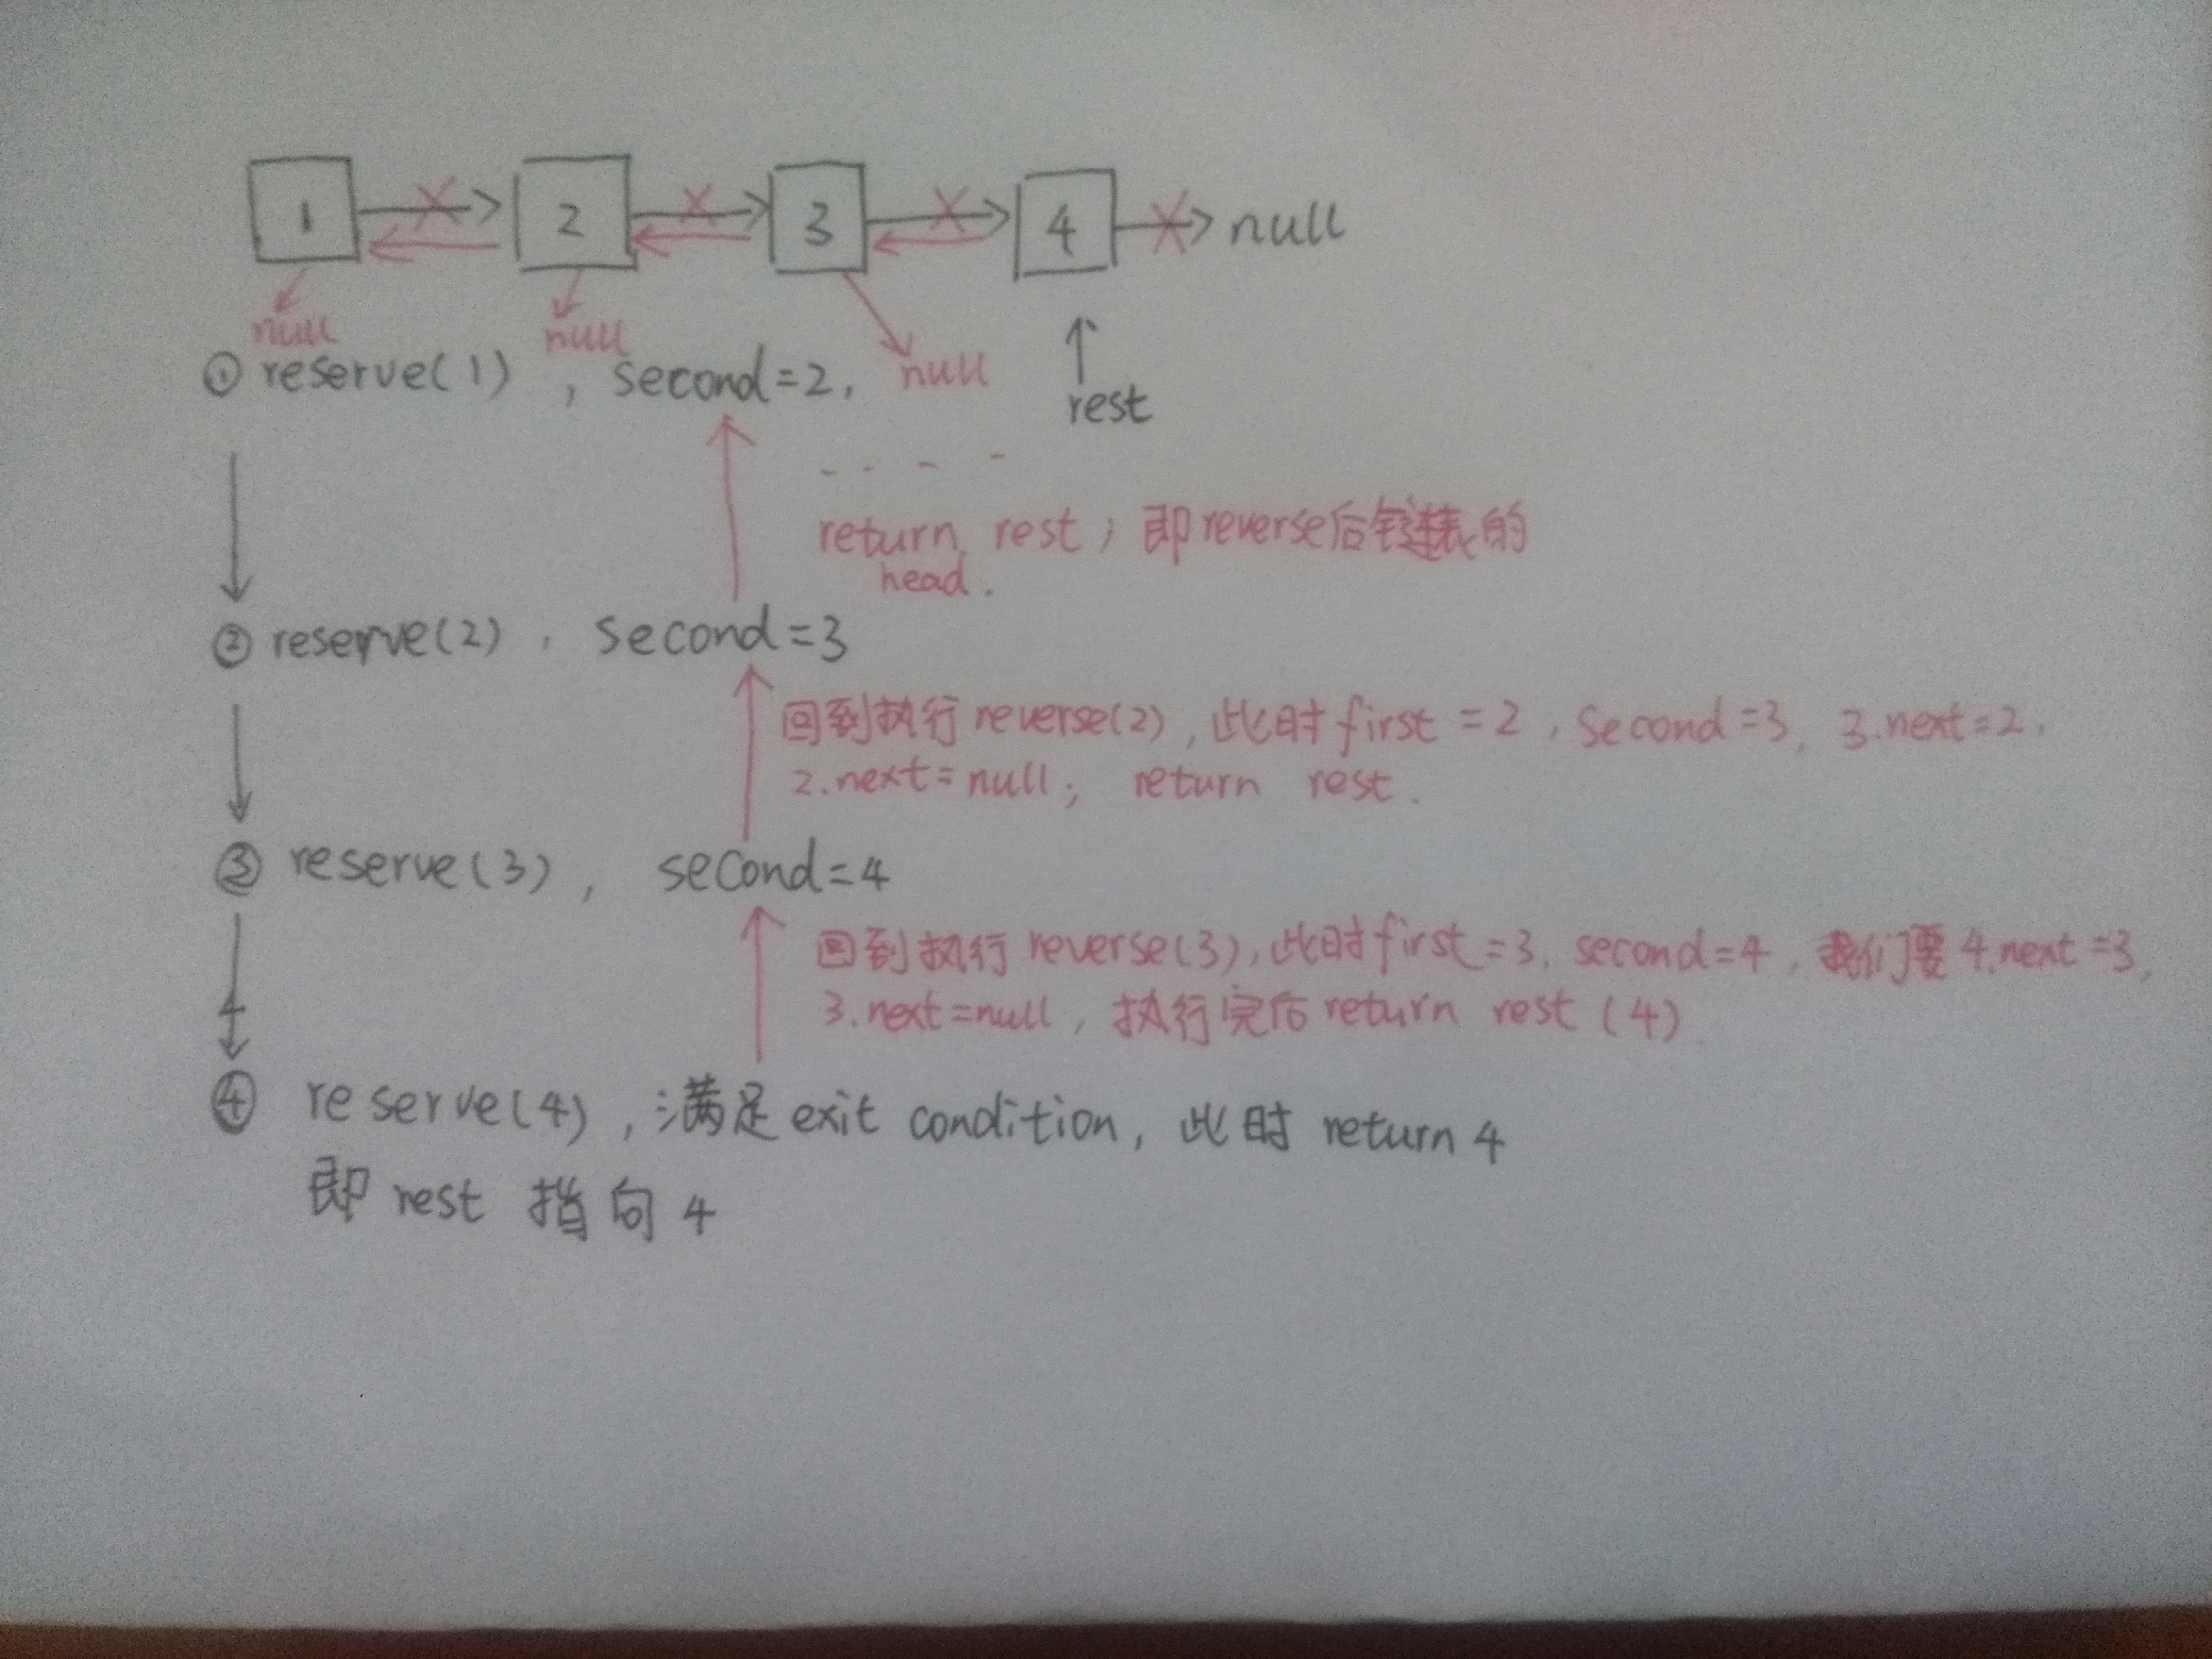 1 2 3 4 null
null null null
① reserve(1) , second=2,
rest
- - - -
return rest ; 即reverse后链表的
head.
② reserve(2) , second=3
回到执行reverse(2), 此时first=2, second=3, 3.next=2,
2.next=null; return rest.
③ reserve(3), second=4
回到执行reverse(3),此时first=3, second=4, 我们要4.next=3,
3.next=null, 执行完后return rest (4)
④ reserve(4), 满足exit condition, 此时 return 4
即 rest 指向 4